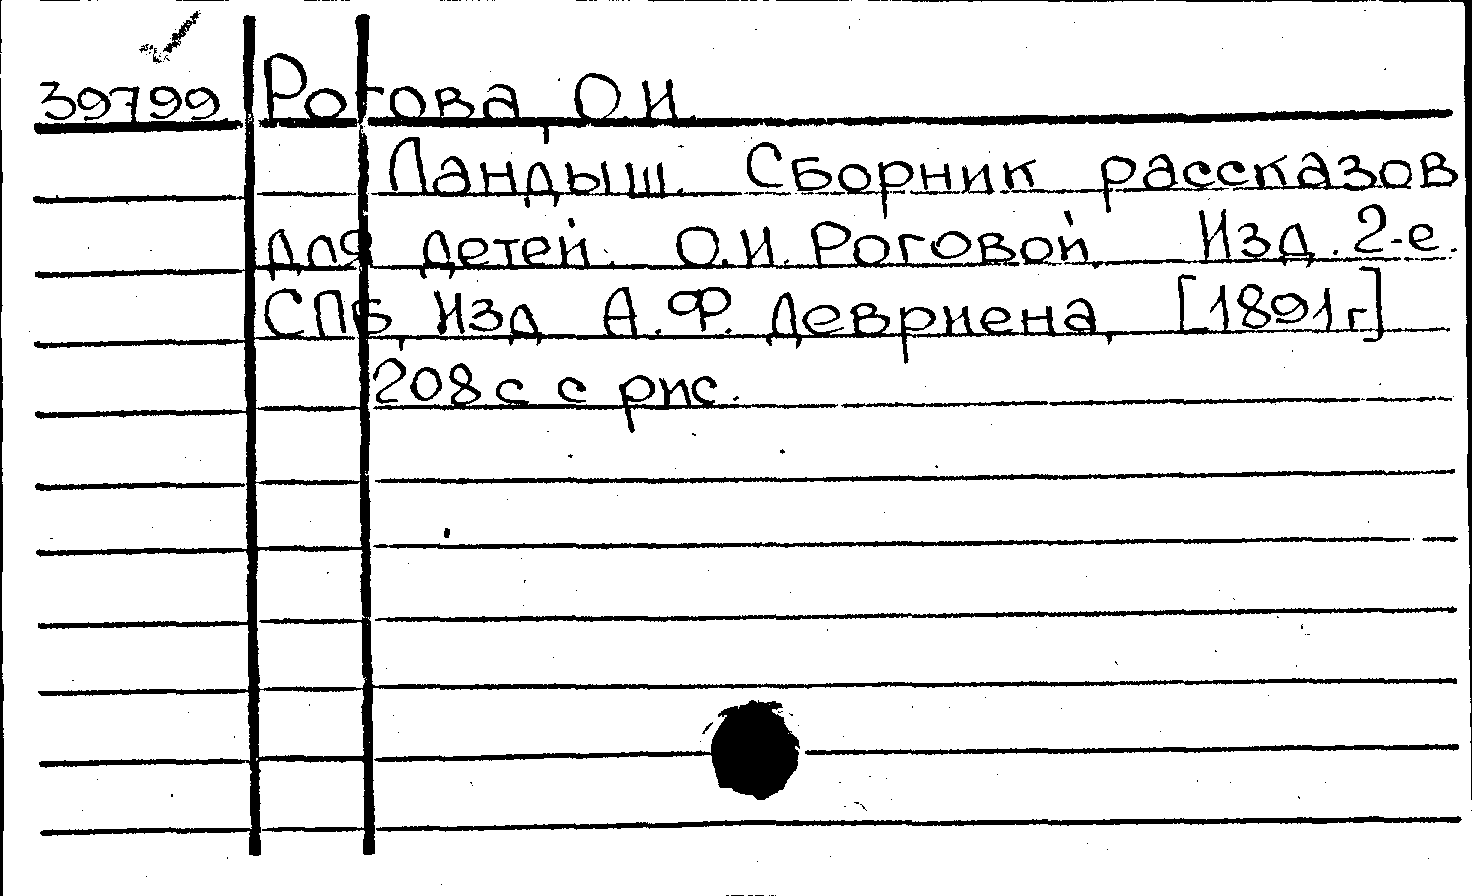 39799 Рогова, О.И.
Ландыш. Сборник рассказов
для детей. О.И. Роговой. Изд. 2-е.
СПб, Изд. А.Ф. Девриена, [1891г.]
208с. с рис.